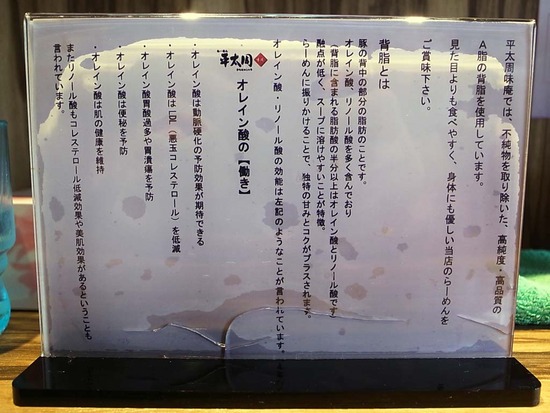 平太周味庵では、不純物を取り除いた、高純度・高品質の
A脂の背脂を使用しています。
見た目よりも食べやすく、身体にも優しい当店のらーめんを
ご賞味下さい。
背脂とは
豚の背中の部分の脂肪のことです。
オレイン酸、リノール酸を多く含んでおり
(背脂に含まれる脂肪酸の半分以上はオレイン酸とリノール酸です)
融点が低く、スープに溶けやすいことが特徴。
らーめんに振りかけることで、独特の甘みとコクがプラスされます。
オレイン酸・リノール酸の効能は左記のようなことが言われています。
平太周
オレイン酸の【働き】
・オレイン酸は動脈硬化の予防効果が期待できる
・オレイン酸はLDL(悪玉コレステロール)を低減
・オレイン酸胃酸過多や胃潰瘍を予防
・オレイン酸は便秘を予防
・オレイン酸は肌の健康を維持
またリノール酸もコレステロール低減効果や美肌効果があるということも
言われています。